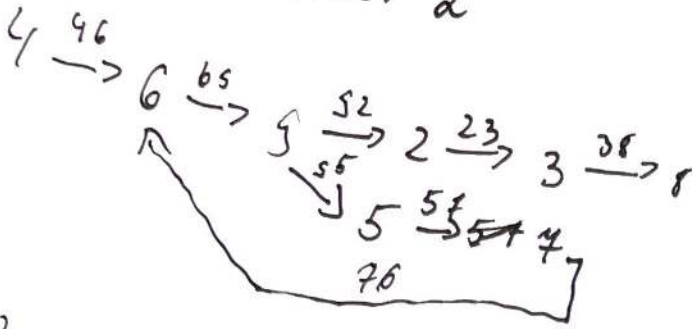 α
4 46 6 65 5 52 2 23 3 38 8
55 5 57 7
76